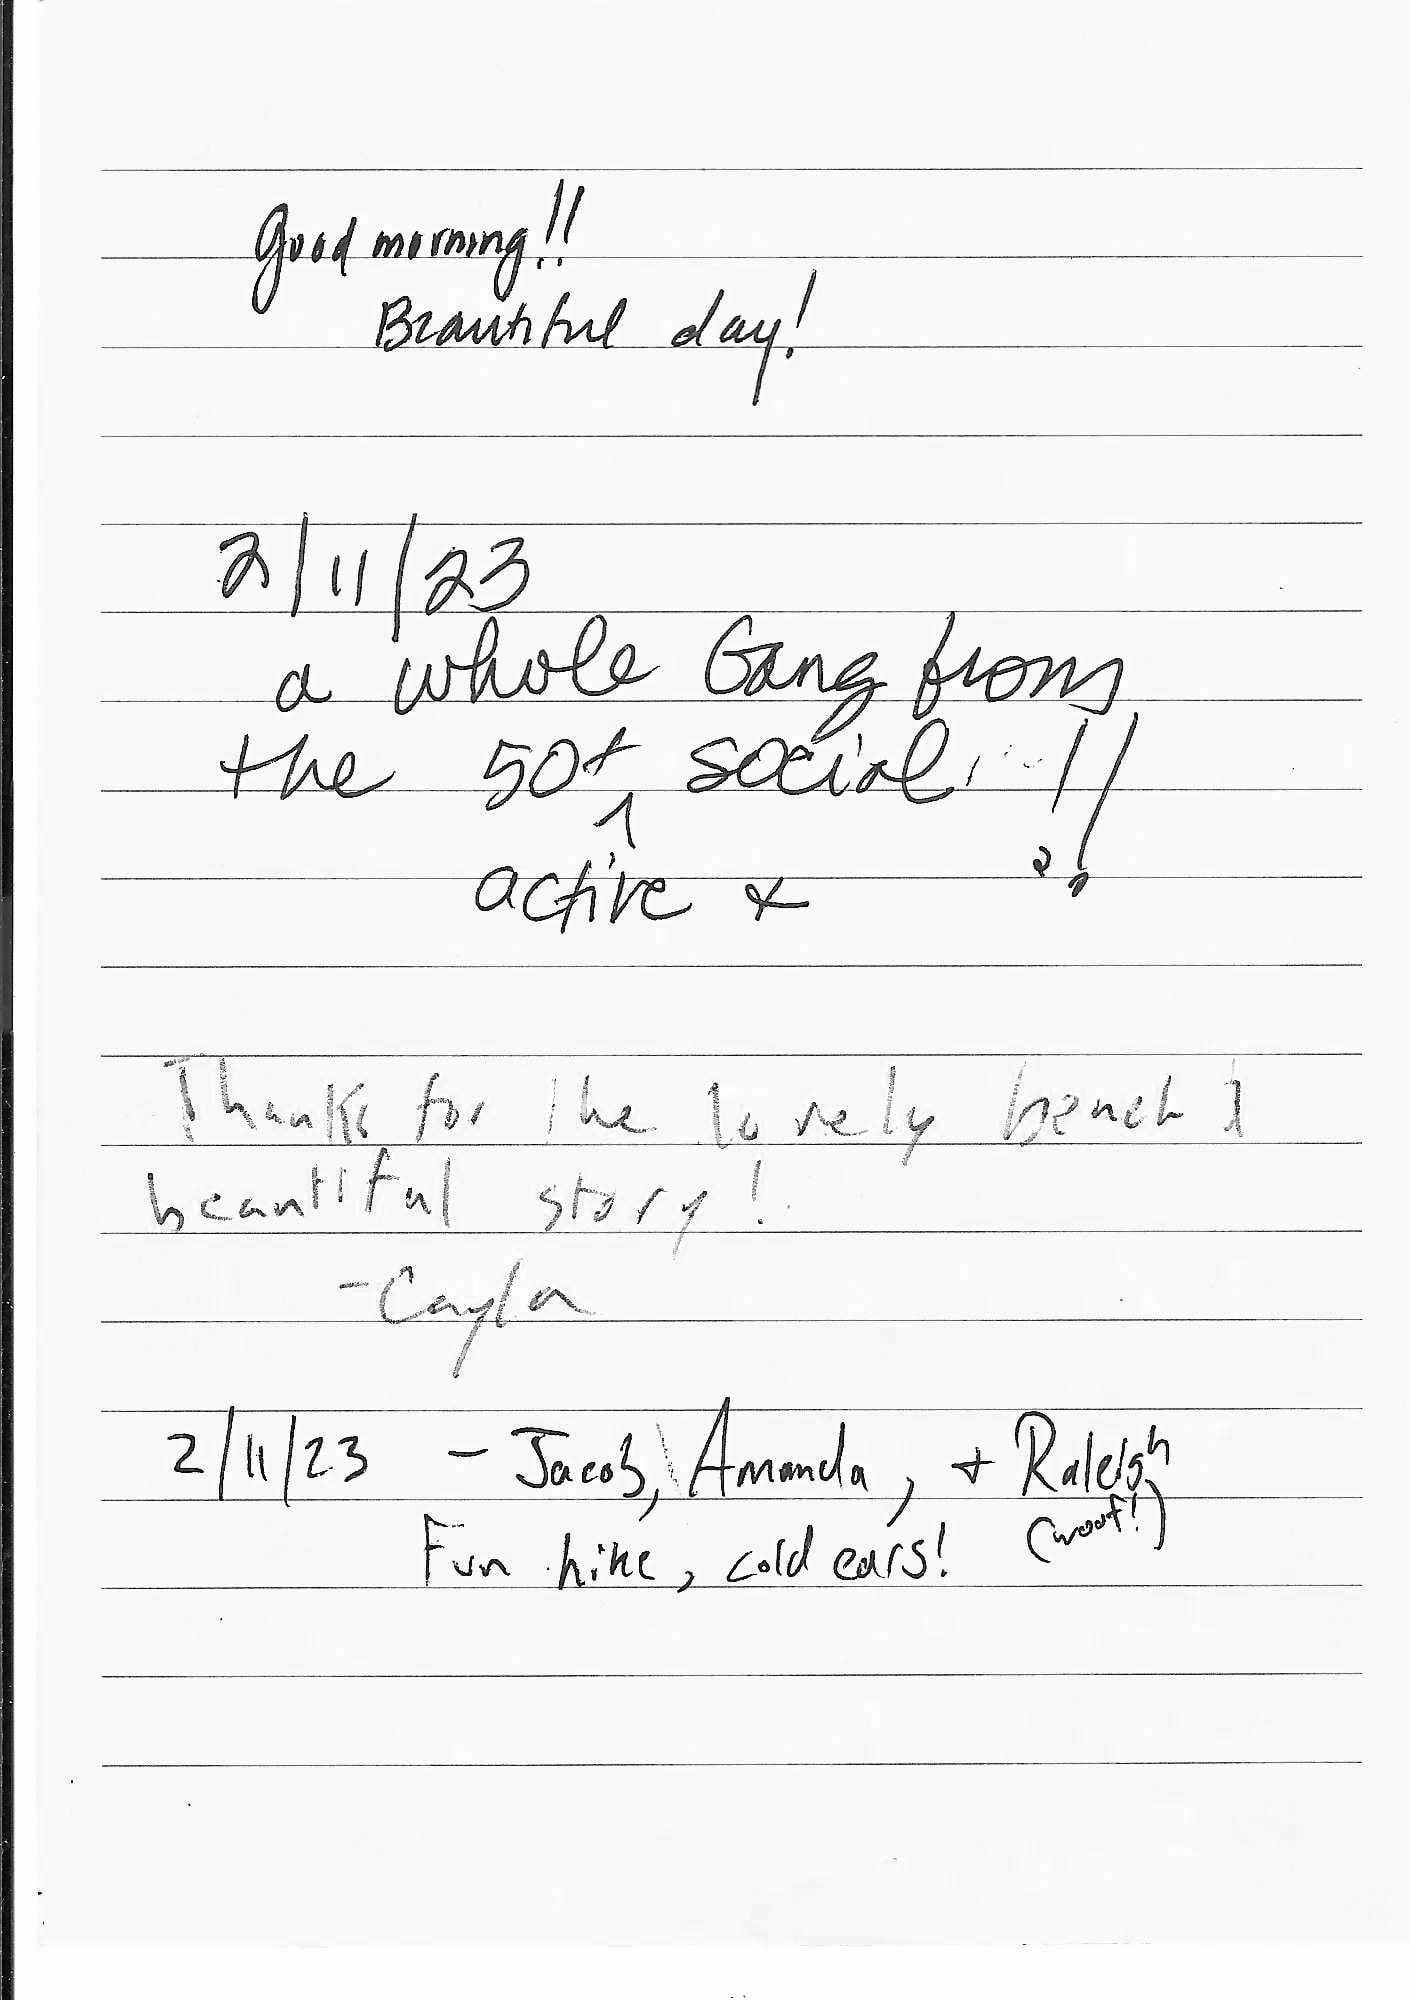 Good morning!!
Beautiful day!
2/11/23
a whole Gang from
the 50+ social !!
^
active &
Thanks for the lovely bench &
beautiful story!
- Cayla
2/11/23 - Jacob, Amanda, + Raleigh
(woof!)
Fun hike, cold ears!